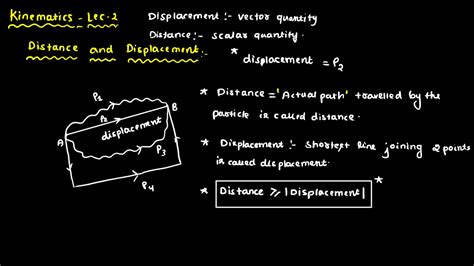 Kinematics - Lec-2
Displacement :- vector quantity
Distance :- scalar quantity.
Distance and Displacement:-
* displacement = P2
P1
B
P2
displacement
A
P3
P4
* Distance = 'Actual path' travelled by the
particle is called distance.
* Displacement :- Shortest line joining 2 points
is called displacement.
* Distance ⩾ |Displacement| *